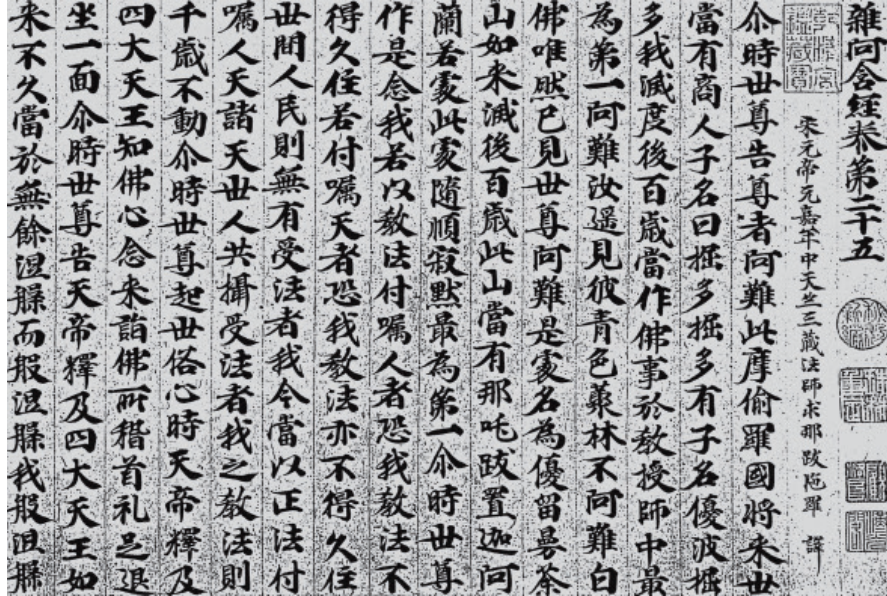 雜阿含経卷第二十五
宋元帝元嘉年中天竺三藏法師求那跋陁羅 譯
尒時世尊告尊者阿難此摩偷羅國將来世
當有商人子名曰掘多掘多有子名優波掘
多我滅度後百歲當作佛事於教授師中最
為第一阿難汝遥見彼青色藂林不阿難白
佛唯然已見世尊阿難是處名為優留曼荼
山如来滅後百歲此山當有那吒跋置迦阿
蘭若處此處隨順寂默最為第一尒時世尊
作是念我若以教法付囑人者恐我教法不
得久住若付囑天者恐我教法亦不得久住
世間人民則無有受法者我今當以正法付
囑人天諸天世人共攝受法者我之教法則
千歲不動尒時世尊起世俗心時天帝釋及
四大天王知佛心念来詣佛所稽首礼足退
坐一面尒時世尊告天帝釋及四大天王如
来不久當於無餘涅槃而般涅槃我般涅槃